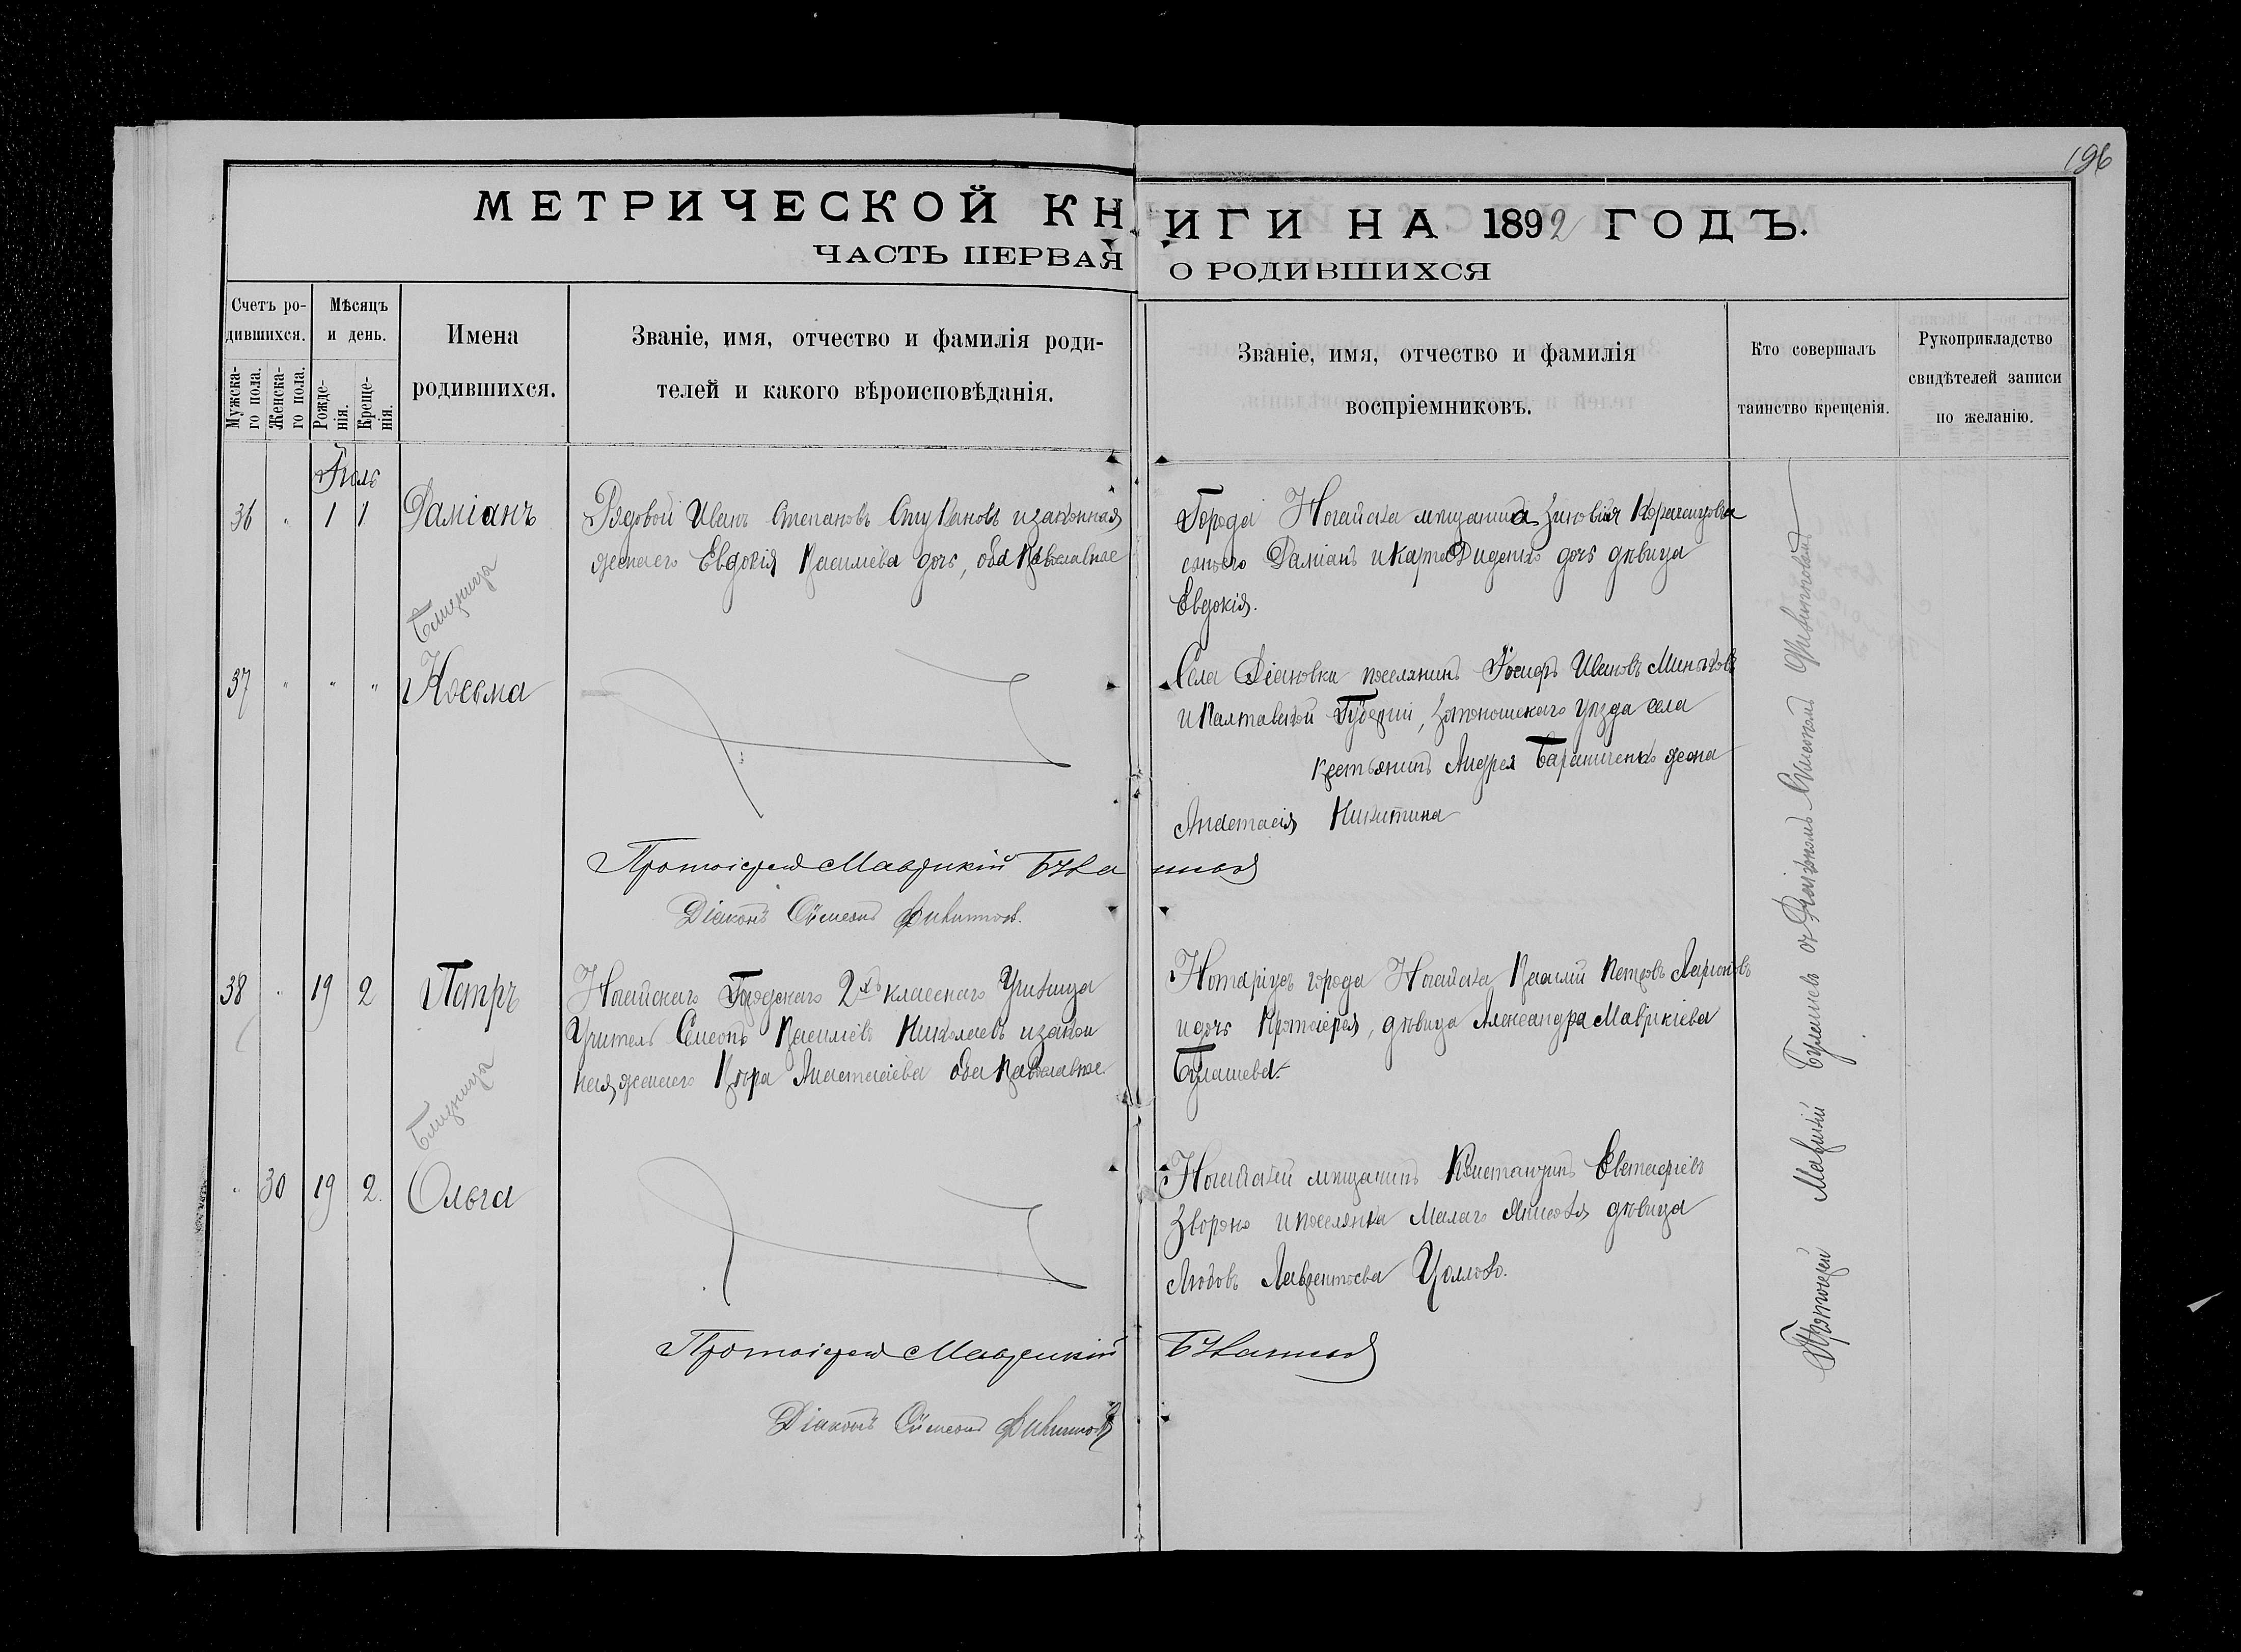 196
МЕТРИЧЕСКОЙ КНИГИ НА 1892 ГОДЪ.
ЧАСТЬ ПЕРВАЯ О РОДИВШИХСЯ
Счетъ ро-
дившихся.
Мужска-
го пола.
Женска-
го пола.
Мѣсяцъ
и день.
Рожде-
нія.
Креще-
нія.
Имена
родившихся.
Званіе, имя, отчество и фамилія роди-
телей и какого вѣроисповѣданія.
Званіе, имя, отчество и фамилія
воспріемниковъ.
Кто совершалъ
таинство крещенія.
Рукоприкладство
свидѣтелей записи
по желанію.
36 " 1 1 Даміанъ
Рядовой Иванъ Степановъ и законная
жена его Евдокія Василіева дочь, оба православные
Города Ногайска мѣщанина
Даміанъ и дочь дѣвица
Евдокія.
Близнеца
37 " " " Косьма
Села Діановка поселянинъ Іосифъ Ивановъ
и Полтавской Губерніи, Золотоношскаго уѣзда села
крестьянинъ Андрея жена
Анастасія Никитина
Протоіерей Маврикій
Діаконъ Сѵмеонъ
38 " 19 2 Петръ
Ногайскаго Городскаго 2хъ класснаго Училища
Учитель Симеонъ Василіевъ Николаевъ и закон
ная жена его Вѣра Анастасіева оба православные.
Нотаріусъ города Ногайска Василій Петровъ Ларіоновъ
и дочь Протоіерея, дѣвица Александра Маврикіева
Булашева.
Близнеца
" 30 19 2. Ольга
Ногайскій мѣщанинъ Константинъ Евстафіевъ
и поселянка дѣвица
Любовь Лаврентьева
Протоіерей Маврикій
Діаконъ Сѵмеонъ
Протоіерей Маврикій съ Діакономъ Симеономъ